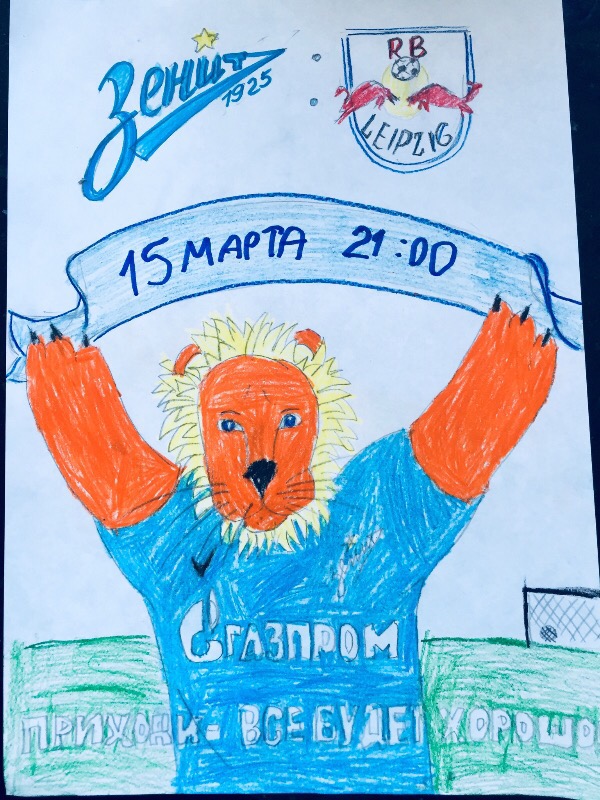 Зенит
1925
:
RB
LEIPZIG
15 МАРТА 21:00
ГАЗПРОМ
ПРИХОДИ - ВСЕ БУДЕТ ХОРОШО